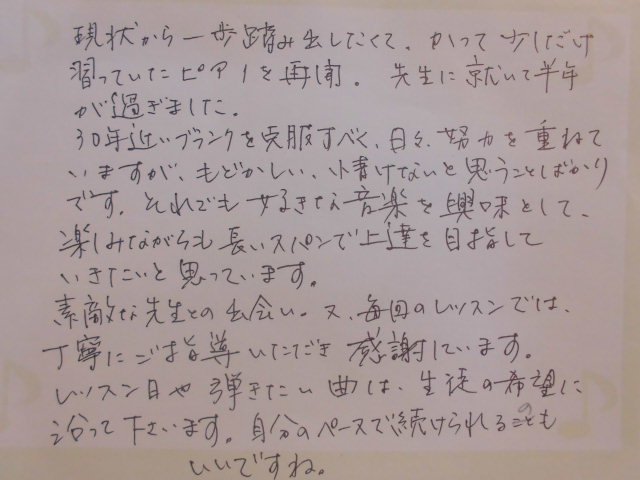 現状から一歩踏み出したくて、かつて少しだけ
習っていたピアノを再開。先生に就いて半年
が過ぎました。
30年近いブランクを克服すべく、日々、努力を重ねて
いますが、もどかしい、情けないと思うことばかり
です。それでも好きな音楽を興味として、
楽しみながらも長いスパンで上達を目指して
いきたいと思っています。
素敵な先生との出会い。又、毎回のレッスンでは、
丁寧にご指導いただき感謝しています。
レッスン日や弾きたい曲は、生徒の希望に
沿って下さいます。自分のペースで続けられるのも
いいですね。